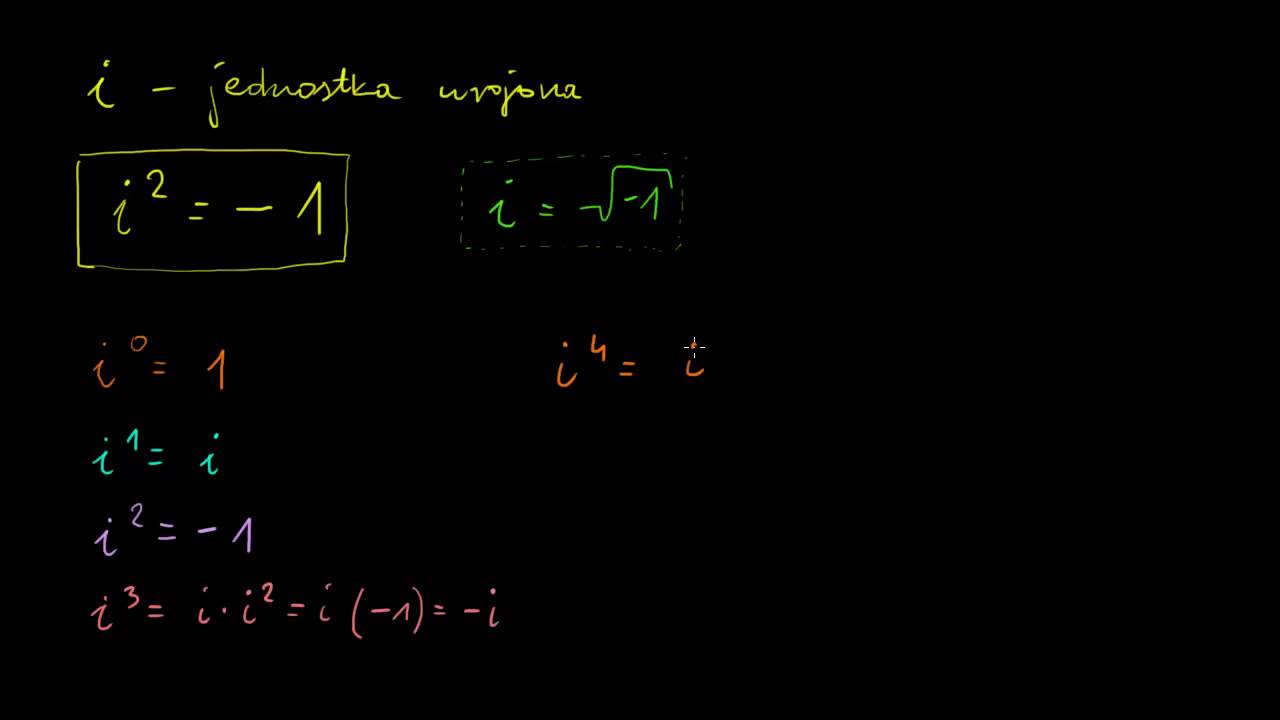 i - jednostka urojona
i² = -1
i = √-1
i⁰ = 1
i¹ = i
i² = -1
i³ = i · i² = i (-1) = -i
i⁴ = i